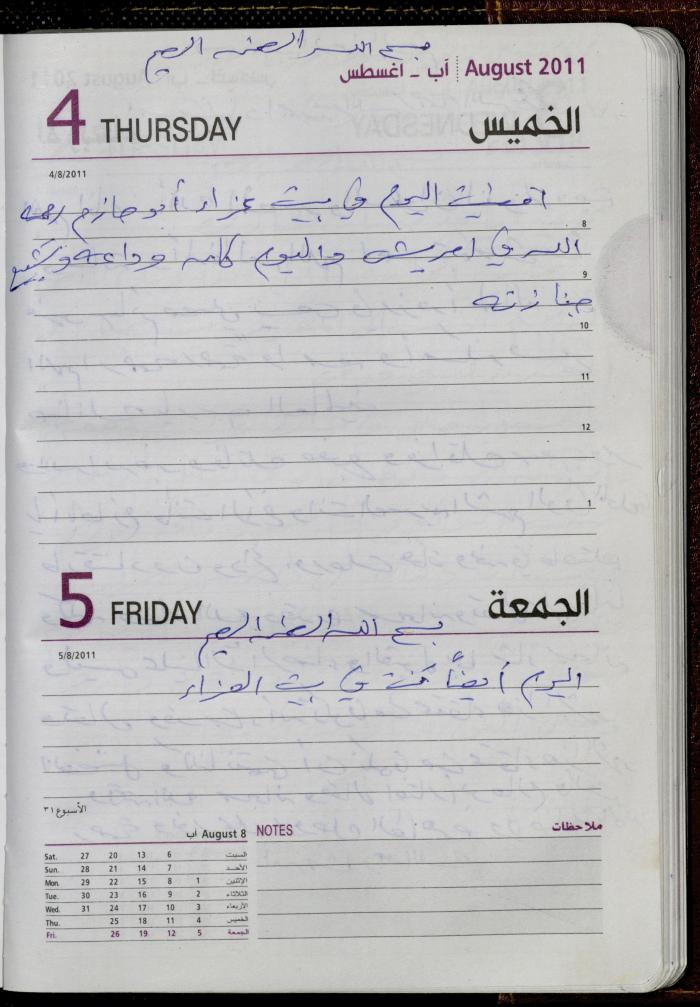 بسم الله الرحمن الرحيم
آب - اغسطس August 2011
4 THURSDAY الخميس
4/8/2011
اليوم في بيت عزاء أبو حازم رحمه
8
الله في واليوم كانه وداعه وتشيع
9
جنازته
10
11
12
1
5 FRIDAY الجمعة
بسم الله الرحمن الرحيم
5/8/2011
اليوم أيضاً كنت في بيت العزاء
الأسبوع ٣١
August 8 آب
Sat. 27 20 13 6 السبت
Sun. 28 21 14 7 الأحد
Mon. 29 22 15 8 1 الاثنين
Tue. 30 23 16 9 2 الثلاثاء
Wed. 31 24 17 10 3 الأربعاء
Thu. 25 18 11 4 الخميس
Fri. 26 19 12 5 الجمعة
NOTES ملاحظات